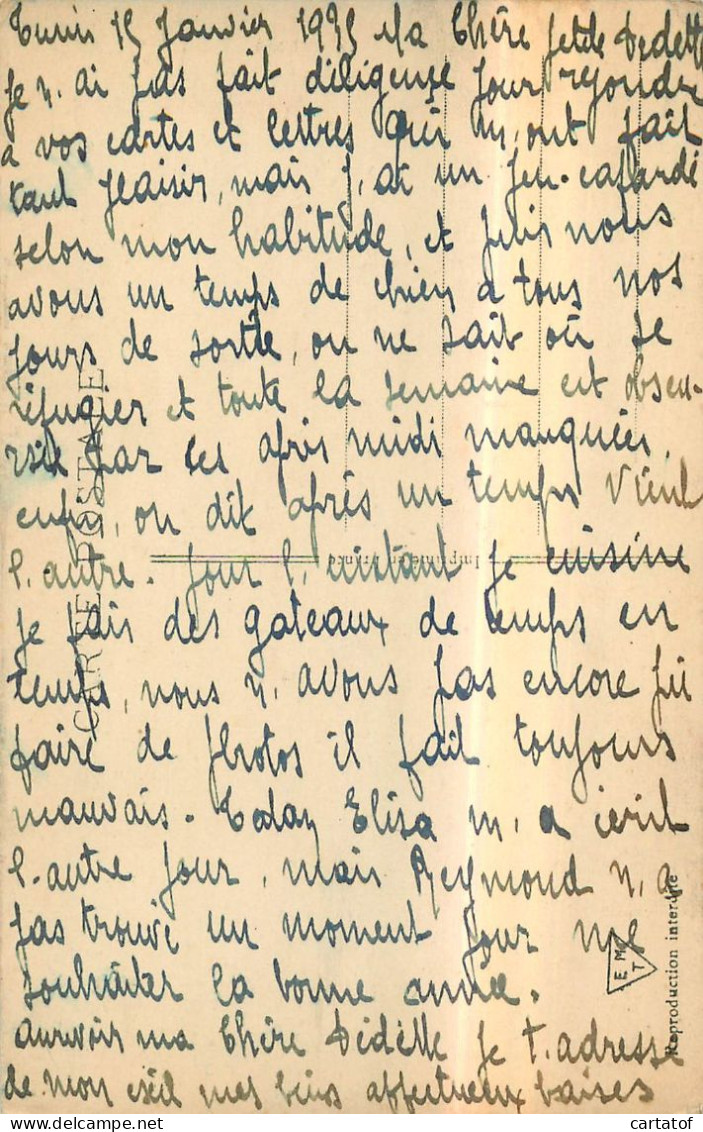 Tunis 15 Janvier 1935 Ma Chère petite Dedette
Je n'ai pas fait diligence pour repondre
a vos cartes et lettres qui m'ont fait
tant plaisir, mais j'ai un peu cafardé
selon mon habitude, et puis nous
avons un temps de chien a tous nos
jours de sortie, on ne sait où se
réfugier et toute la semaine est obscu-
rsie par les apris midi manquées,
enfin, on dit après un temps vient
l'autre. Pour l'instant je cuisine
je fais des gateaux de temps en
temps, nous n'avons pas encore pu
faire de photos il fait toujours
mauvais. Elisa m'a écrit
l'autre jour, mais Reymond n'a
pas trouvé un moment pour me
souhaiter la bonne année.
aurevoir ma Chère Dédette je t'adresse
de mon exil mes biens affectueux baises
CARTE POSTALE
Reproduction interdite
EMT
cartatof